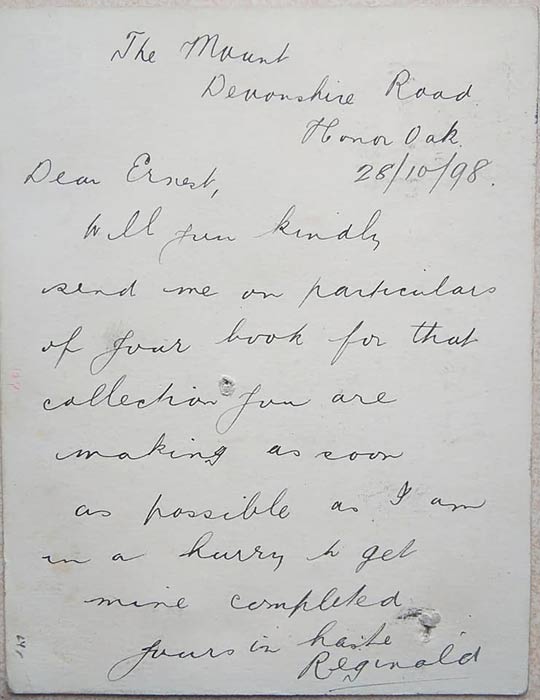 The Mount
Devonshire Road.
Honor Oak.
28/10/98.
Dear Ernest,
Will you kindly
send me on particulars
of your book for that
collection you are
making as soon
as possible as I am
in a hurry to get
mine completed
yours in haste
Reginald